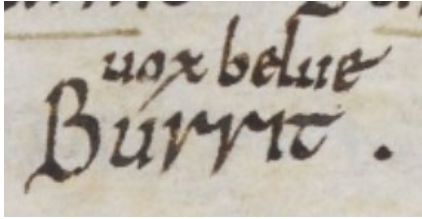 uox belue
Burrit .